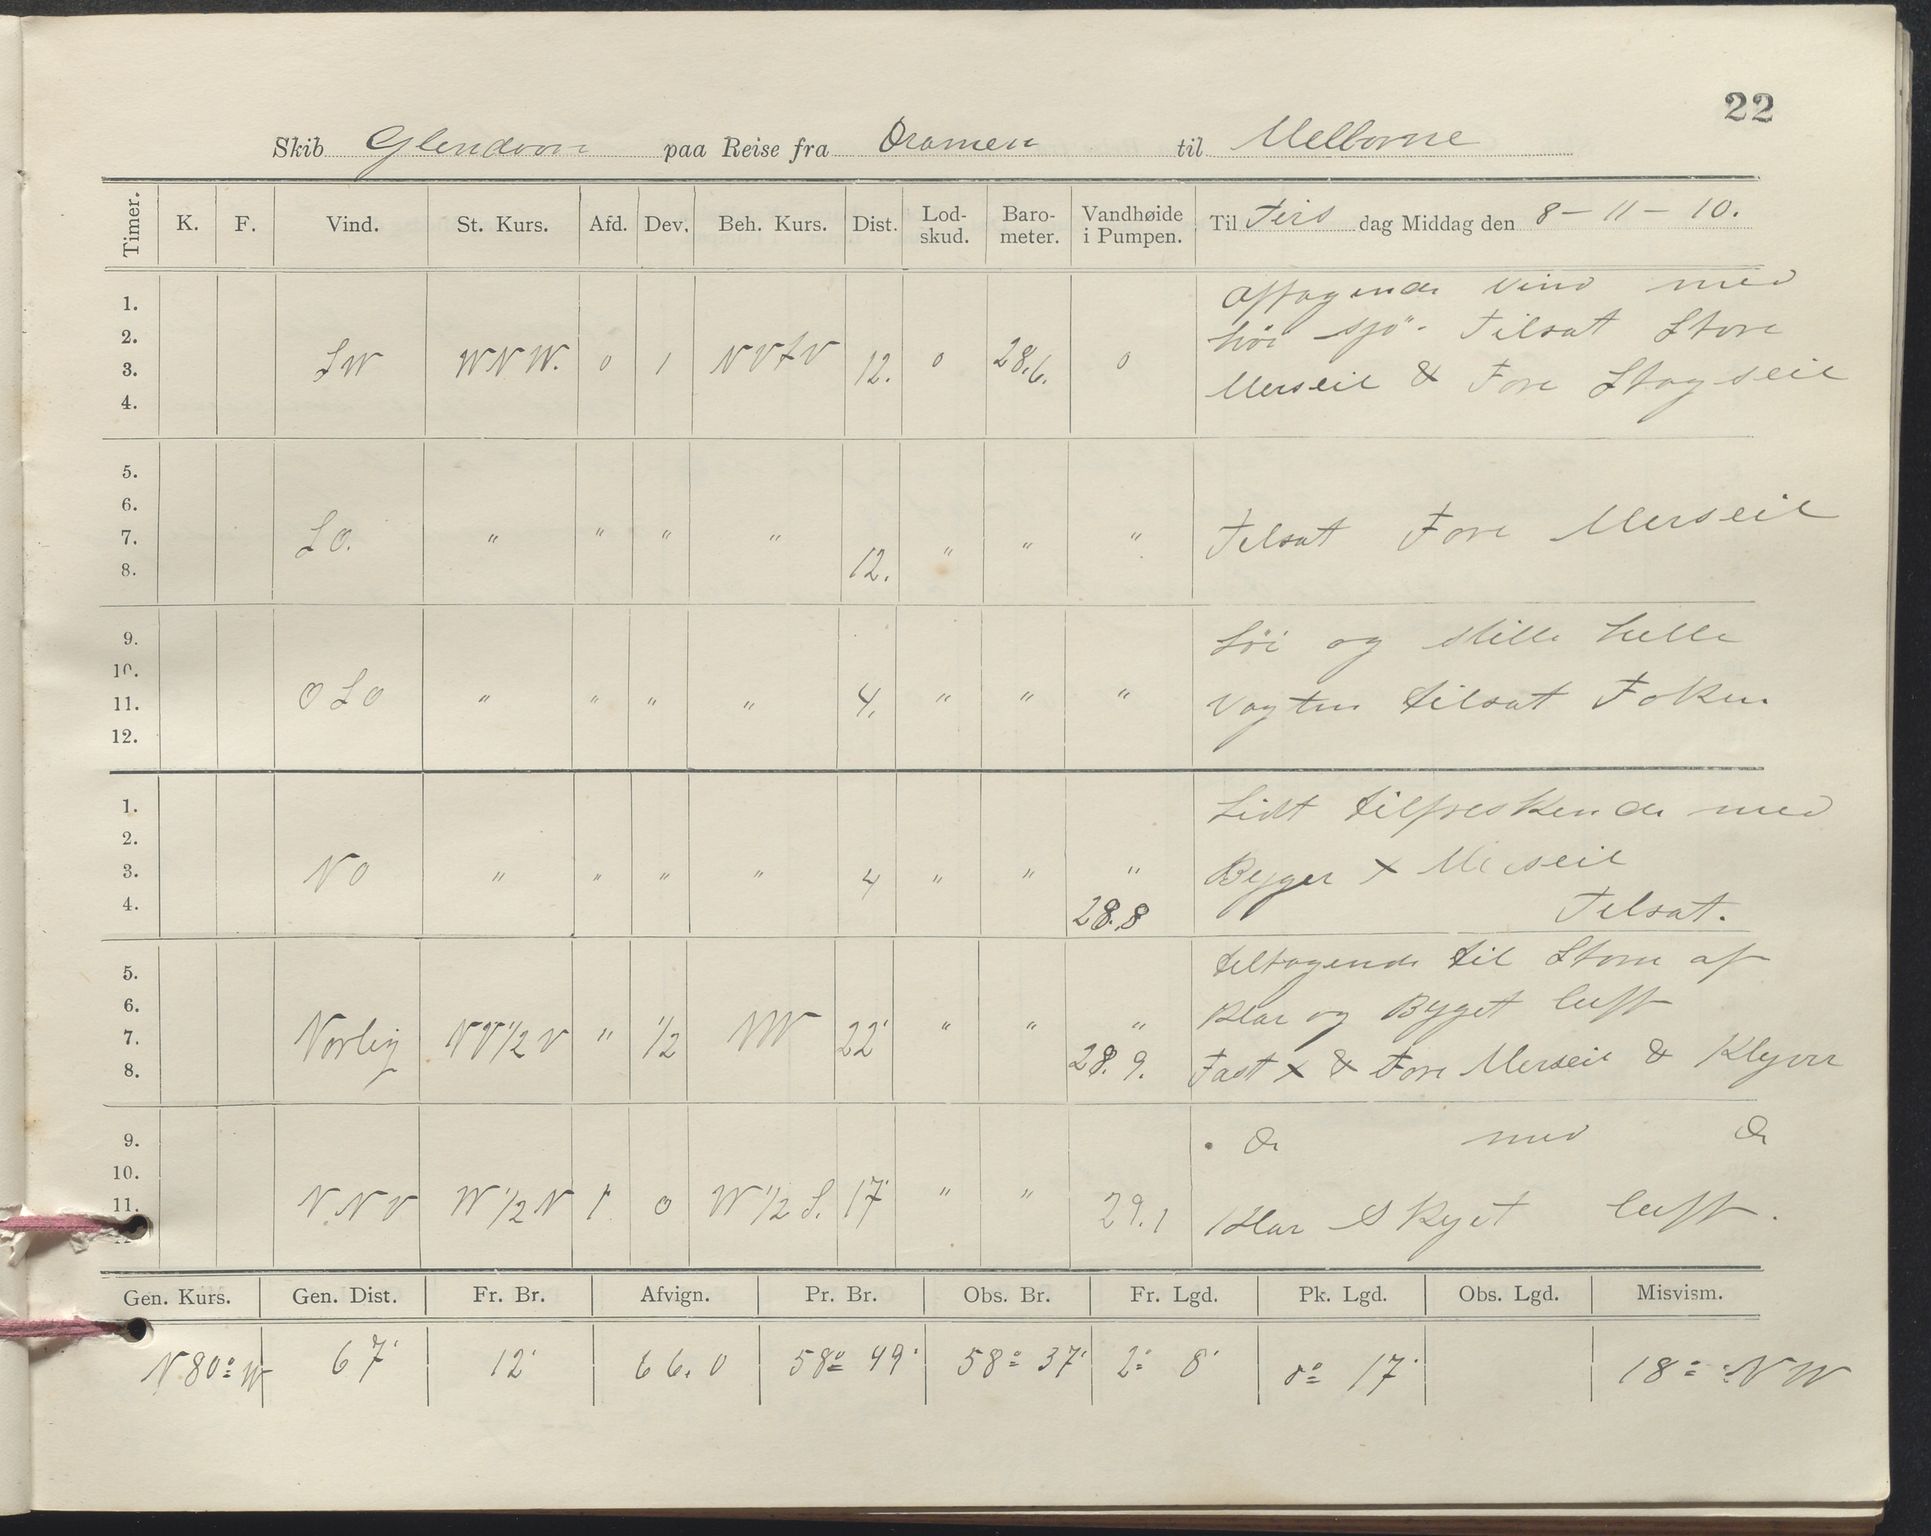 22
Skib Glendoon paa Reise fra Dramen til Melborne
Timer. K. F. Vind. St. Kurs. Afd. Dev. Beh. Kurs. Dist. Lod-skud. Baro-meter. Vandhøide i Pumpen. Til Tirs dag Middag den 8 - 11 - 10.
1. Aftagende vind med
2. høi sjø. Tilsat Store
3. SW WNW. 0 1 NVtV 12. 0 28.6. 0 Merseil & Fore Stagseil
4.
5.
6.
7. SO. " " " " 12. " " " Tilsat Fore Merseil
8.
9. Løi og stille hele
10.
11. OSO " " " " 4. " " " Vagten tilsat Fokken
12.
1. Lidt tilfreskende med
2.
3. NO " " " " 4 " " " Byger x Merseil
4. 28.8 Tilsat.
5. tiltagende til Storm af
6. Klar og Byget luft
7. Norlig NV 1/2 V " 1/2 NW 22' " " "
8. 28.9. Fast x & Fore Merseil & Klyver
9. do med do
10.
11. NNV W 1/2 N 1 0 W 1/2 S. 17' " " 29.1 Klar Skyet luft.
Gen. Kurs. Gen. Dist. Fr. Br. Afvign. Pr. Br. Obs. Br. Fr. Lgd. Pk. Lgd. Obs. Lgd. Misvism.
N 80° W 67' 12' 66.0 58° 49' 58° 37' 2° 8' 0° 17' 18° NW